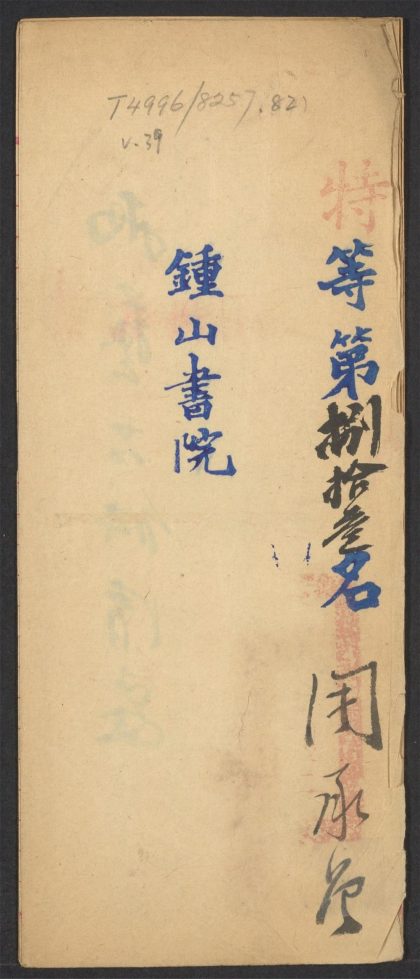 T4996/8257.82
v.39
特等第捌拾名 周承
鍾山書院